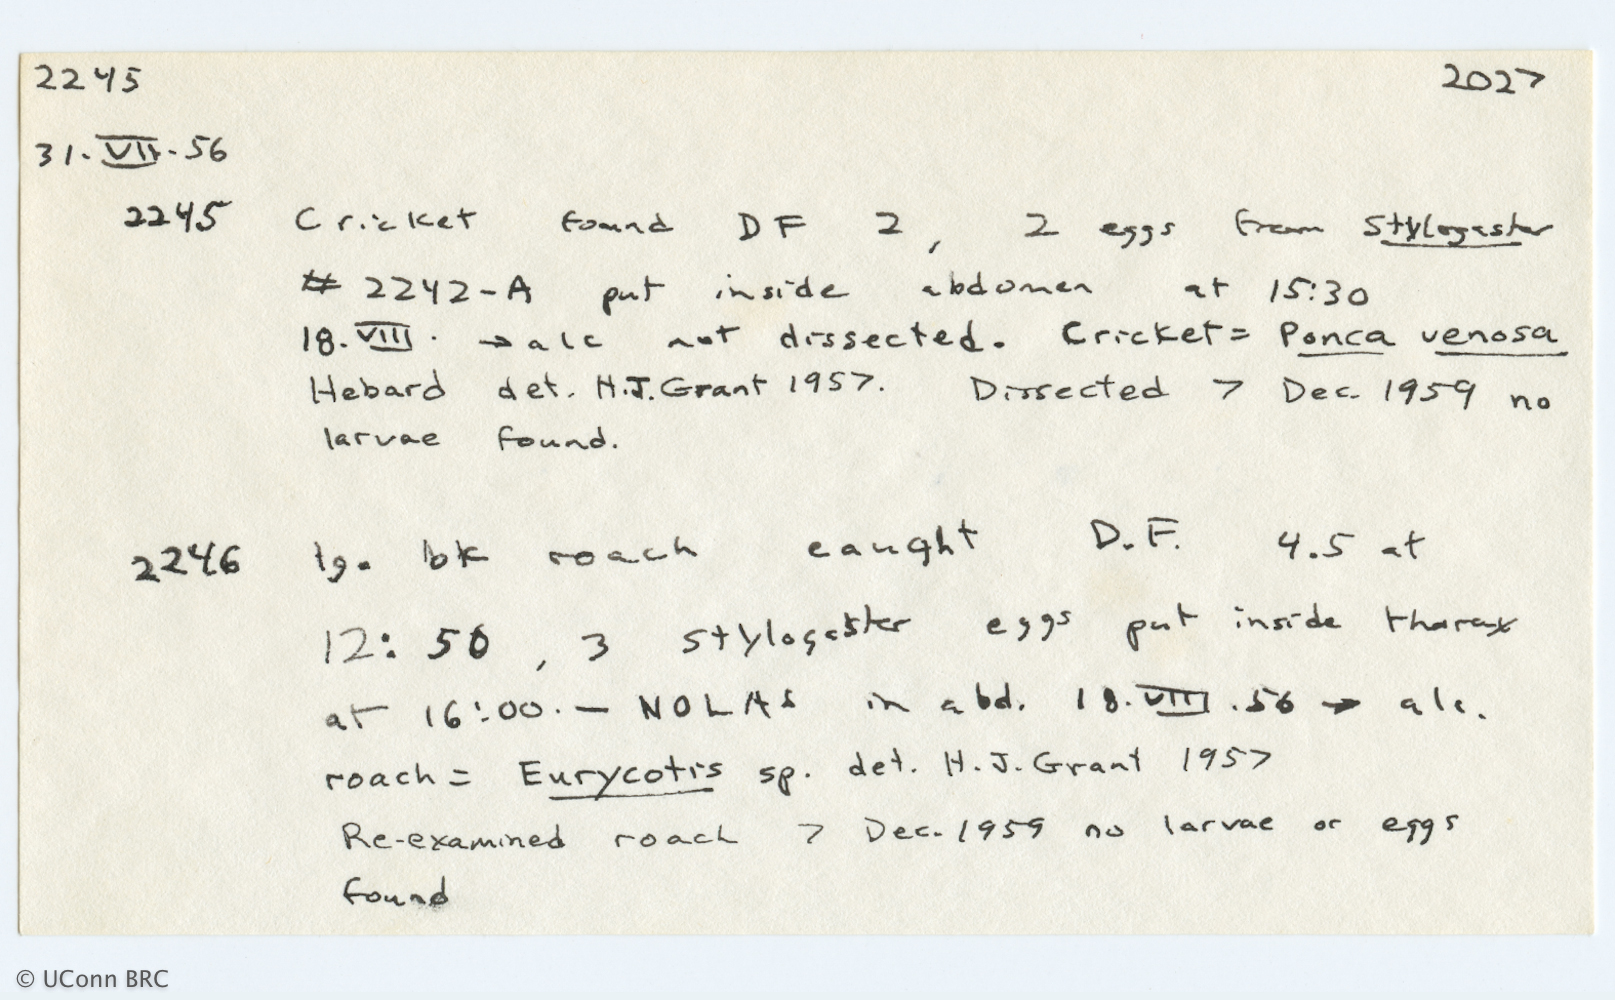 2245 2027
31.VII.56
2245 Cricket found DF 2, 2 eggs from Stylogaster
# 2242-A put inside abdomen at 15:30
18.VIII. → alc not dissected. Cricket = Ponca venosa
Hebard det. H.J. Grant 1957. Dissected 7 Dec. 1959 no
larvae found.
2246 lg. bk roach caught D.F. 4.5 at
12:50, 3 stylogaster eggs put inside thorax
at 16:00. — NO LAS in abd. 18.VIII.56 → alc.
roach = Eurycotis sp. det. H.J. Grant 1957
Re-examined roach 7 Dec. 1959 no larvae or eggs
found
© UConn BRC